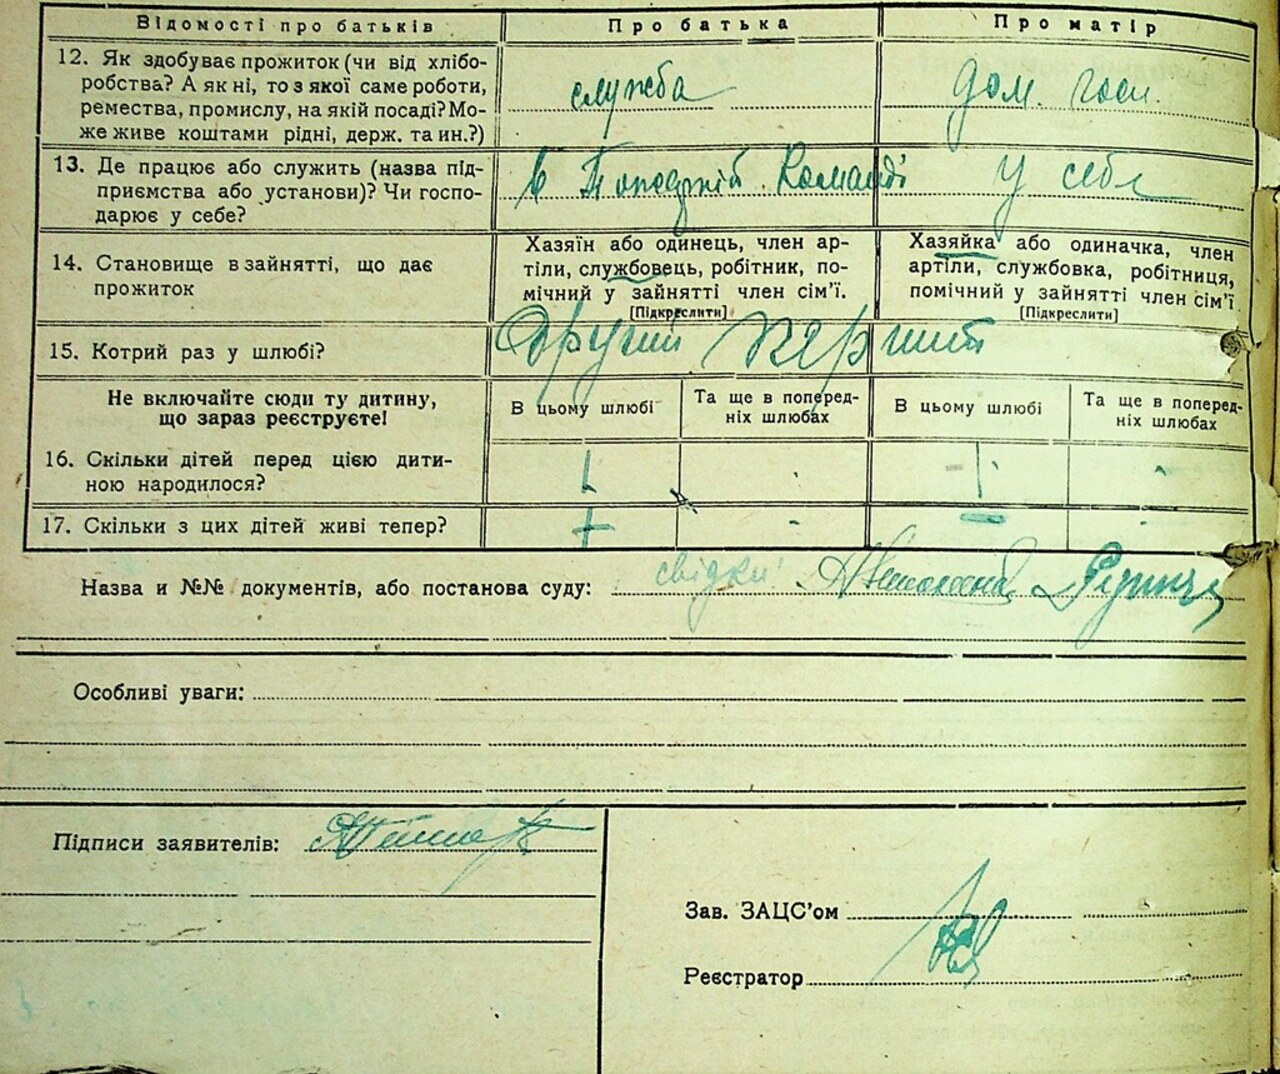 Відомості про батьків Про батька Про матір
12. Як здобуває прожиток (чи від хлібо-
робства? А як ні, то з якої саме роботи,
ремества, промислу, на якій посаді? Мо-
же живе коштами рідні, держ. та ин.?)
служба дом. госп.
13. Де працює або служить (назва під-
приємства або установи)? Чи госпо-
дарює у себе?
в Команді у себе
14. Становище в зайнятті, що дає
прожиток
Хазяїн або одинець, член ар-
тіли, службовець, робітник, по-
мічний у зайнятті член сім'ї.
[Підкреслити]
Хазяйка або одиначка, член
артіли, службовка, робітниця,
помічний у зайнятті член сім'ї
[Підкреслити]
15. Котрий раз у шлюбі? другий перший
Не включайте сюди ту дитину,
що зараз реєструєте!
В цьому шлюбі
Та ще в поперед-
ніх шлюбах
В цьому шлюбі
Та ще в поперед-
ніх шлюбах
16. Скільки дітей перед цією дити-
ною народилося?
17. Скільки з цих дітей живі тепер?
Назва и №№ документів, або постанова суду: свідки:
Особливі уваги:
Підписи заявителів:
Зав. ЗАЦС'ом
Реєстратор